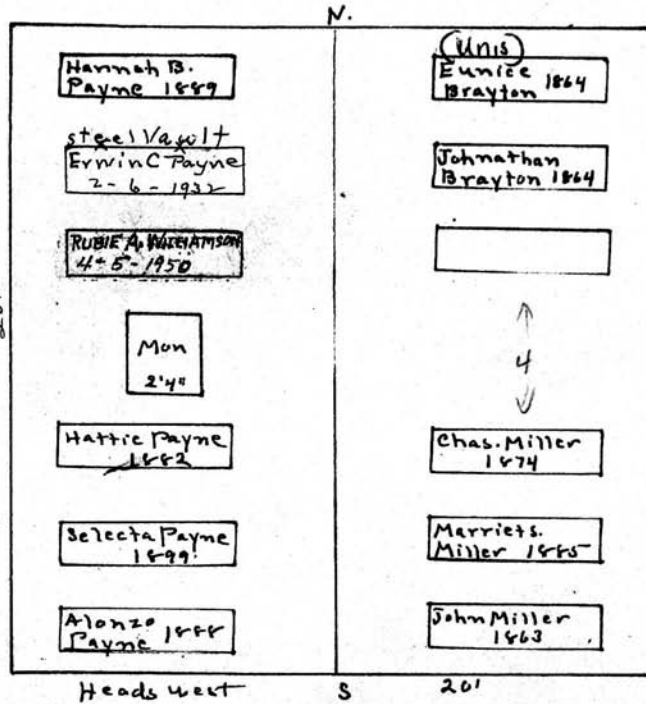 N.
Hannah B.
Payne 1889
steel Vault
Erwin C Payne
2-6-1932
RUBIE A. WILLIAMSON
4-5-1950
Mon
2'4"
Hattie Payne
1882
Selecta Payne
1899
Alonzo
Payne 1888
(Unis)
Eunice
Brayton 1864
Johnathan
Brayton 1864
4
Chas. Miller
1874
Marriets.
Miller 1885
John Miller
1863
Heads west
S
20'